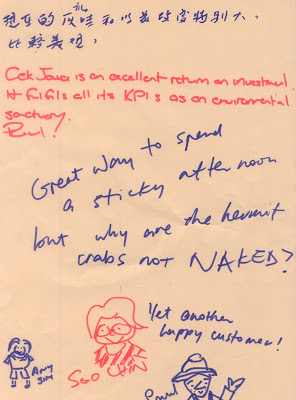 现在的
比較美观，
Cek Jawa is an excellent return on investment.
It fulfils all its KPIs as an environmental
sanctuary.
Paul!
Great way to spend
a sticky afternoon
but why are the hermit
crabs not NAKED?
Yet another
happy customer!
Amy
Sim
SOO CHIN
Paul